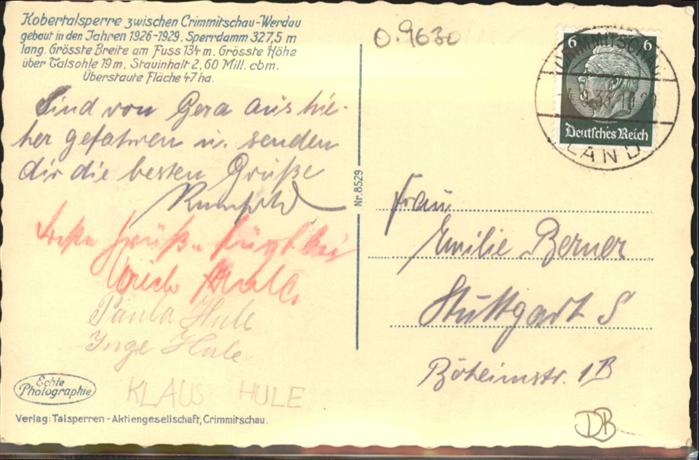 Kobertalsperre zwischen Crimmitschau-Werdau
gebaut in den Jahren 1926-1929. Sperrdamm 327,5 m
lang. Grösste Breite am Fuss 134 m. Grösste Höhe
über Talsohle 19 m. Stauinhalt 2,60 Mill. cbm.
Überstaute Fläche 47 ha.
0.9630
6 6
Deutsches Reich
LAND
Sind von Gera aus hie-
her gefahren u. senden
dir die besten Grüße
Grüße fügt bei
Paula Hule
Inge Hule
KLAUS HULE
Nr. 8529
Frau
Emilie Berner
Stuttgart S
Böheimstr. 1B
Echte
Photographie
Verlag: Talsperren-Aktiengesellschaft, Crimmitschau.
DB